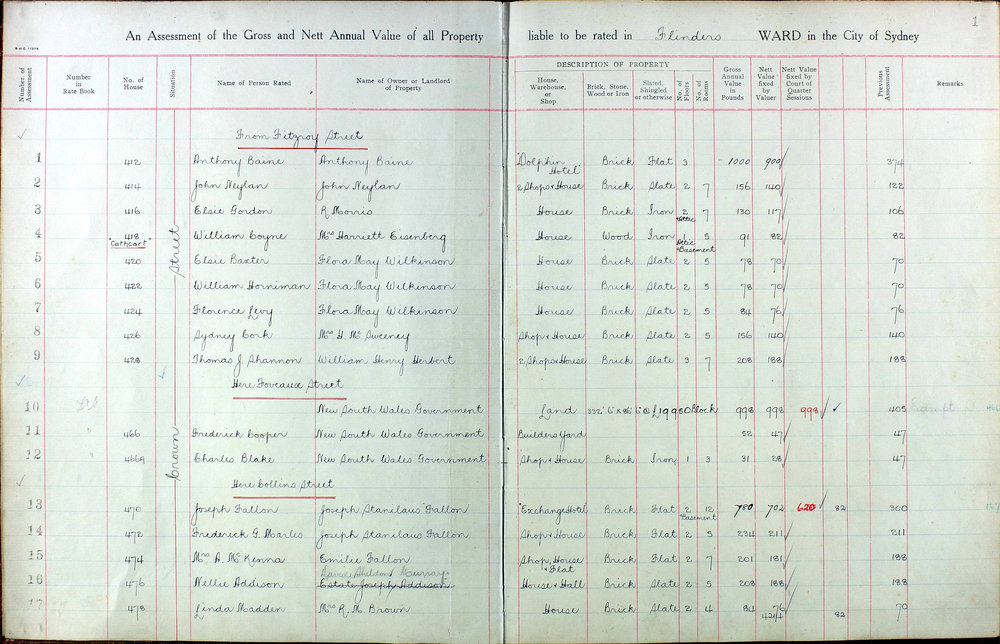 1
An Assessment of the Gross and Nett Annual Value of all Property liable to be rated in Flinders WARD in the City of Sydney
DESCRIPTION OF PROPERTY
Number of Assessment | Number in Rate Book | No. of House | Situation | Name of Person Rated | Name of Owner or Landlord of Property | House, Warehouse, or Shop | Brick, Stone, Wood or Iron | Slated, Shingled or otherwise | No. of Floors | No. of Rooms | Gross Annual Value in Pounds | Nett Value fixed by Valuer | Nett Value fixed by Court of Quarter Sessions | Previous Assessment | Remarks
Crown Street
From Fitzroy Street
1 412 Anthony Baine Anthony Baine "Dolphin Hotel" Brick Flat 3 1000 900 374
2 414 John Neylan John Neylan 2 Shops & House Brick Slate 2 7 156 140 122
3 416 Elsie Gordon R Morris House Brick Iron 2 Attic 7 130 117 106
4 418 "Cathcart" William Coyne Mrs Harriett Eisenberg House Wood Iron 1 Attic Basement 5 91 82 82
5 420 Elsie Baxter Flora May Wilkinson House Brick Slate 2 5 78 70 70
6 422 William Horniman Flora May Wilkinson House Brick Slate 2 5 78 70 70
7 424 Florence Levy Flora May Wilkinson House Brick Slate 2 5 84 76 76
8 426 Sydney Cork Mrs H. McSweeney Shop & House Brick Slate 2 5 156 140 140
9 428 Thomas J. Shannon William Henry Herbert 2 Shops & House Brick Slate 3 7 208 188 188
Here Foveaux Street
10 New South Wales Government Land £19980 Block 998 998 998 405 Exempt
11 466 Frederick Cooper New South Wales Government Builders Yard 52 47 47
12 466A Charles Blake New South Wales Government Shop & House Brick Iron 1 3 31 28 47
Here Collins Street
13 470 Joseph Fallon Joseph Stanilaus Fallon "Exchange Hotel" Brick Flat 2 Basement 12 780 702 620 82 300
14 472 Frederick G. Marles Joseph Stanilaus Fallon Shop & House Brick Flat 2 5 234 211 211
15 474 Mrs A. McKenna Emilie Fallon Shop, House & Flat Brick Flat 2 7 201 181 188
David Sheldon Murray
16 476 Nellie Addison Estate Joseph Addison House & Hall Brick Slate 2 5 208 188 188
17 478 Linda Madden Mrs R. M. Brown House Brick Slate 2 4 84 76 82 70